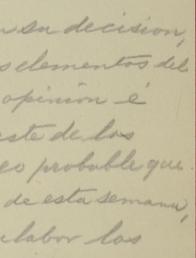 n su decision,
s elementos del
opinion é
este de las
eo probable que
de esta semana,
labor las